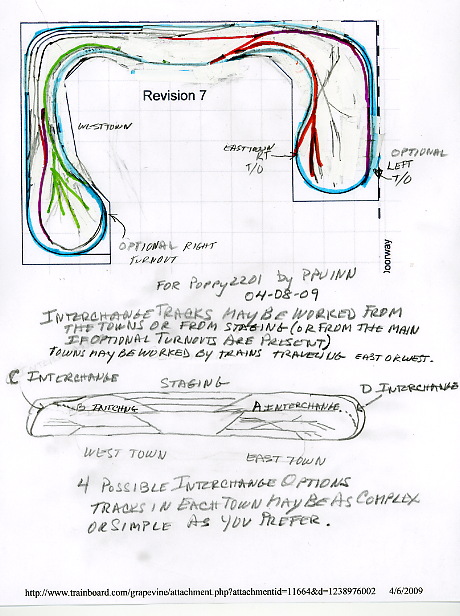 Revision 7
WEST TOWN
EAST TOWN
RT
T/O
OPTIONAL
LEFT
T/O
OPTIONAL RIGHT
TURNOUT
doorway
FOR POPPY2201 by PAVINN
04-08-09
INTERCHANGE TRACKS MAY BE WORKED FROM
THE TOWNS OR FROM STAGING (OR FROM THE MAIN
IF OPTIONAL TURNOUTS ARE PRESENT)
TOWNS MAY BE WORKED BY TRAINS TRAVELING EAST OR WEST.
C INTERCHANGE
STAGING
D INTERCHANGE
B INTCHNG
A INTERCHANGE
WEST TOWN
EAST TOWN
4 POSSIBLE INTERCHANGE OPTIONS
TRACKS IN EACH TOWN MAY BE AS COMPLEX
OR SIMPLE AS YOU PREFER.
http://www.trainboard.com/grapevine/attachment.php?attachmentid=11664&d=1238976002 4/6/2009